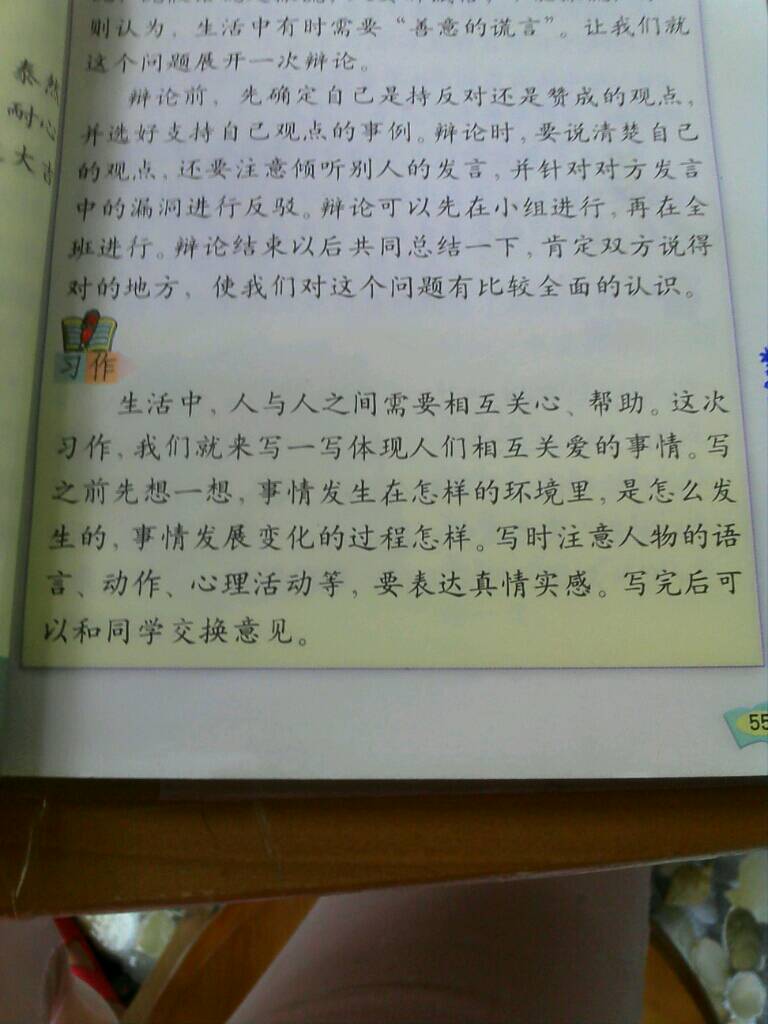 则认为，生活中有时需要“善意的谎言”。让我们就
这个问题展开一次辩论。
辩论前，先确定自己是持反对还是赞成的观点，
并选好支持自己观点的事例。辩论时，要说清楚自己
的观点，还要注意倾听别人的发言，并针对对方发言
中的漏洞进行反驳。辩论可以先在小组进行，再在全
班进行。辩论结束以后共同总结一下，肯定双方说得
对的地方，使我们对这个问题有比较全面的认识。
习作
生活中，人与人之间需要相互关心、帮助。这次
习作，我们就来写一写体现人们相互关爱的事情。写
之前先想一想，事情发生在怎样的环境里，是怎么发
生的，事情发展变化的过程怎样。写时注意人物的语
言、动作、心理活动等，要表达真情实感。写完后可
以和同学交换意见。
55
泰然
耐心
大